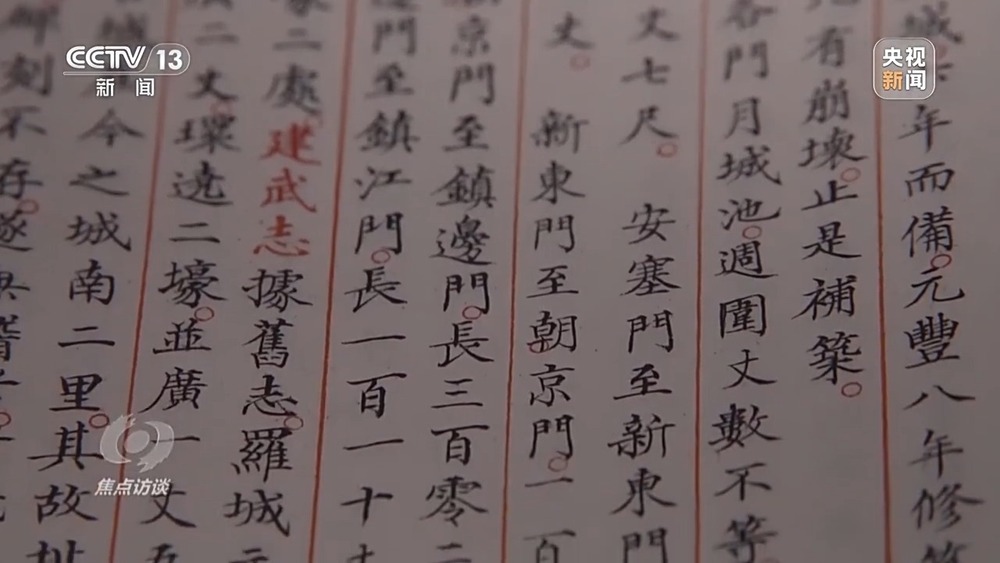 CCTV 13
新闻
央视
新闻
城
年而備元豐八年修
有崩壞止是補築
各門月城池週圍丈數不等
丈七尺 安塞門至新東門
丈 新東門至朝京門一百
京門至鎮邊門長三百零二
門至鎮江門長一百一十
二處建武志據舊志羅城
二丈環遶二壕並廣一丈五
今之城南二里其故址
刻不存遂
焦点访谈